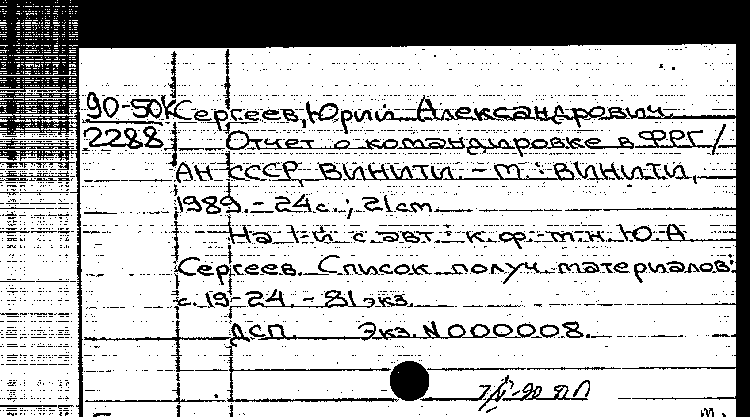 90-50К Сергеев, Юрий Александрович
2288 Отчет о командировке в ФРГ /
АН СССР, ВИНИТИ. - М. : ВИНИТИ,
1989. - 24 с. ; 21 cm.
На 1-й с. авт.: к.ф.-м.н. Ю.А
Сергеев. Список получ. материалов:
с. 19-24. - 81 экз.
ДСП. Экз. N 000008.